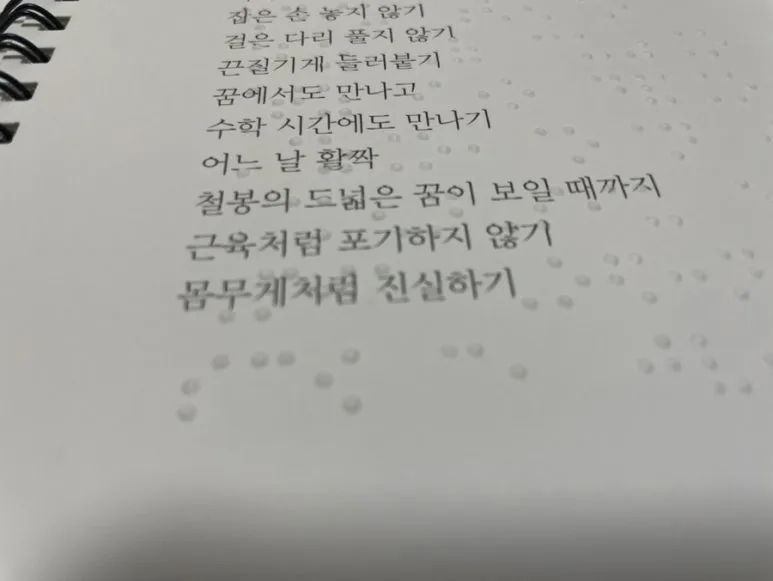 잡은 손 놓지 않기
걸은 다리 풀지 않기
끈질기게 들러붙기
꿈에서도 만나고
수학 시간에도 만나기
어느 날 활짝
철봉의 드넓은 꿈이 보일 때까지
근육처럼 포기하지 않기
몸무게처럼 진실하기